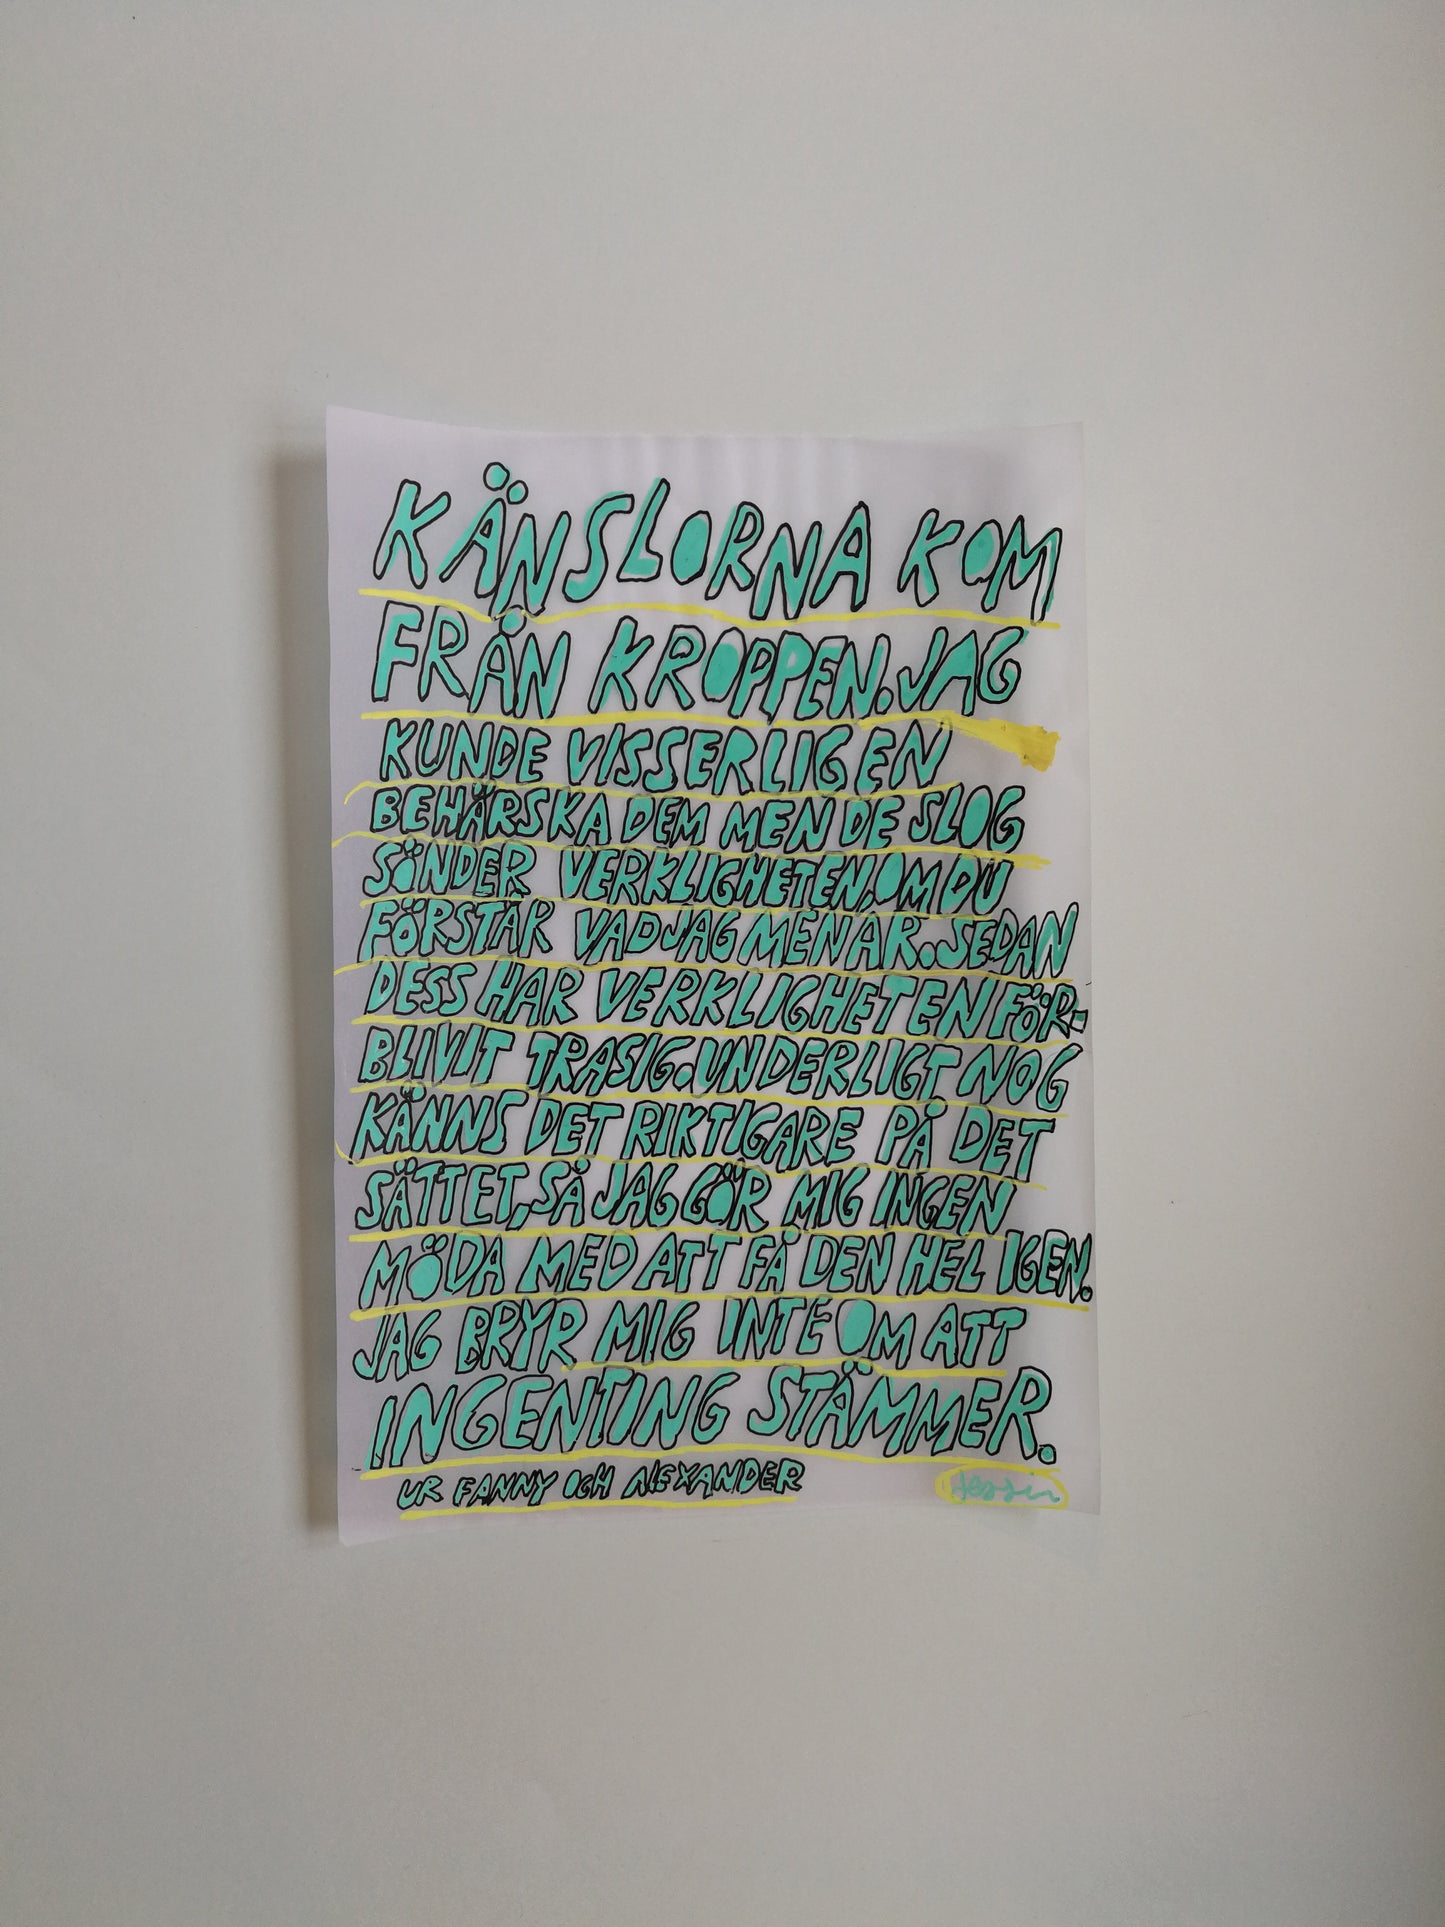 KÄNSLORNA KOM
FRÅN KROPPEN. JAG
KUNDE VISSERLIGEN
BEHÄRSKA DEM MEN DE SLOG
SÖNDER VERKLIGHETEN, OM DU
FÖRSTÅR VAD JAG MENAR. SEDAN
DESS HAR VERKLIGHETEN FÖR-
BLIVIT TRASIG. UNDERLIGT NOG
KÄNNS DET RIKTIGARE PÅ DET
SÄTTET, SÅ JAG GÖR MIG INGEN
MÖDA MED ATT FÅ DEN HEL IGEN.
JAG BRYR MIG INTE OM ATT
INGENTING STÄMMER.
UR FANNY OCH ALEXANDER